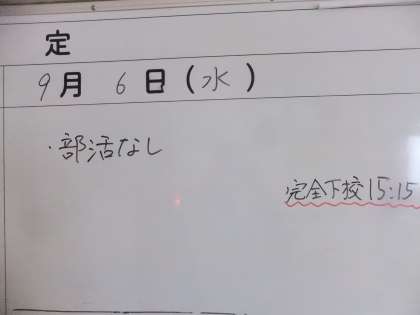 定
9月 6日(水)
・部活なし
完全下校15:15